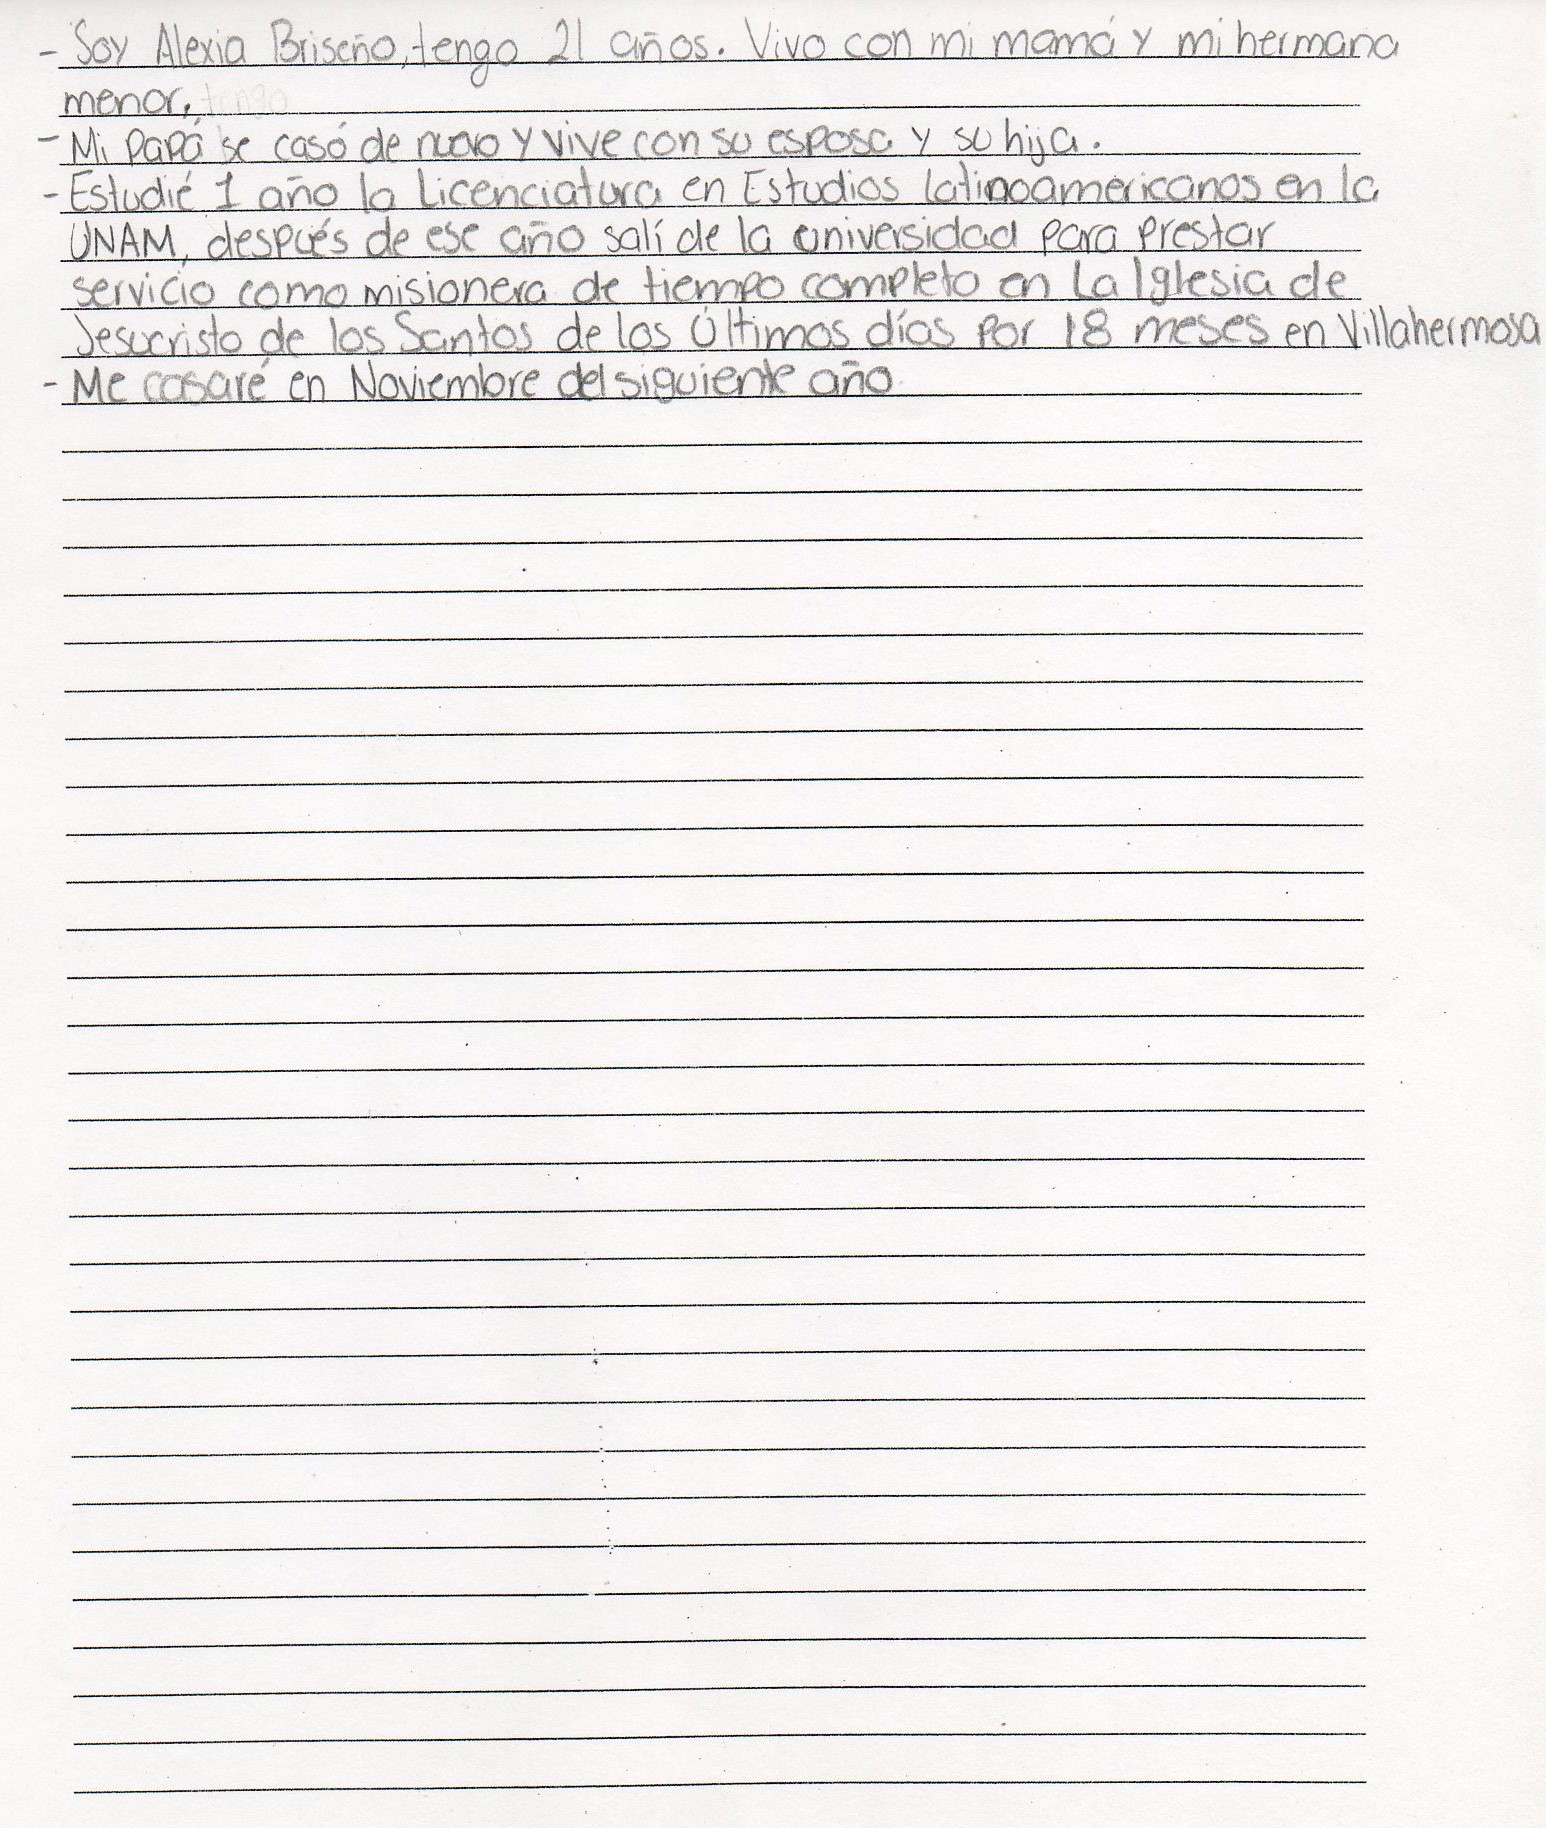 - Soy Alexia Briseño, tengo 21 años. Vivo con mi mamá y mi hermana
menor. tengo
- Mi papá se casó de nuevo y vive con su esposa y su hija.
- Estudié 1 año la Licenciatura en Estudios Latinoamericanos en la
UNAM, después de ese año salí de la universidad para prestar
servicio como misionera de tiempo completo en La Iglesia de
Jesucristo de los Santos de los Últimos días por 18 meses en Villahermosa
- Me casaré en Noviembre del siguiente año